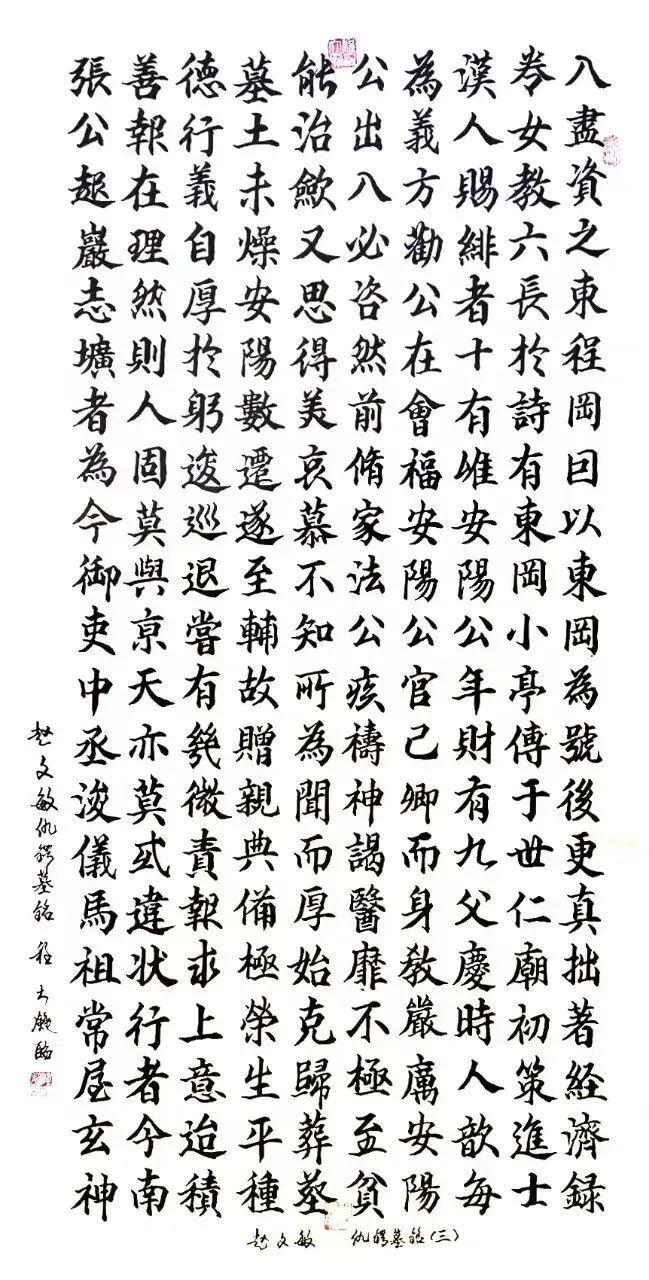 入盡資之東程岡曰以東岡為號後更真拙著経濟録
卷女教六長於詩有東岡小亭傳于世仁廟初策進士
漢人賜緋者十有雄安陽公年財有九父慶時人歆每
為義方勸公在會福安陽公官已卿而身教嚴厲安陽
公出入必咨然前脩家法公疾禱神謁醫靡不極至貧
能治歛又思得美哀慕不知所為聞而厚始克歸葬葬
墓土未燥安陽數遷遂至輔故贈親典備極榮生平種
德行義自厚於躬逡巡退嘗有幾微責報求上意迨積
善報在理然則人固莫與京天亦莫或違状行者今南
張公起巖志壙者為今御史中丞浚儀馬祖常屋玄神
趙文敏仇鍔墓銘 程大錢臨
趙文敏 仇鍔墓銘(三)